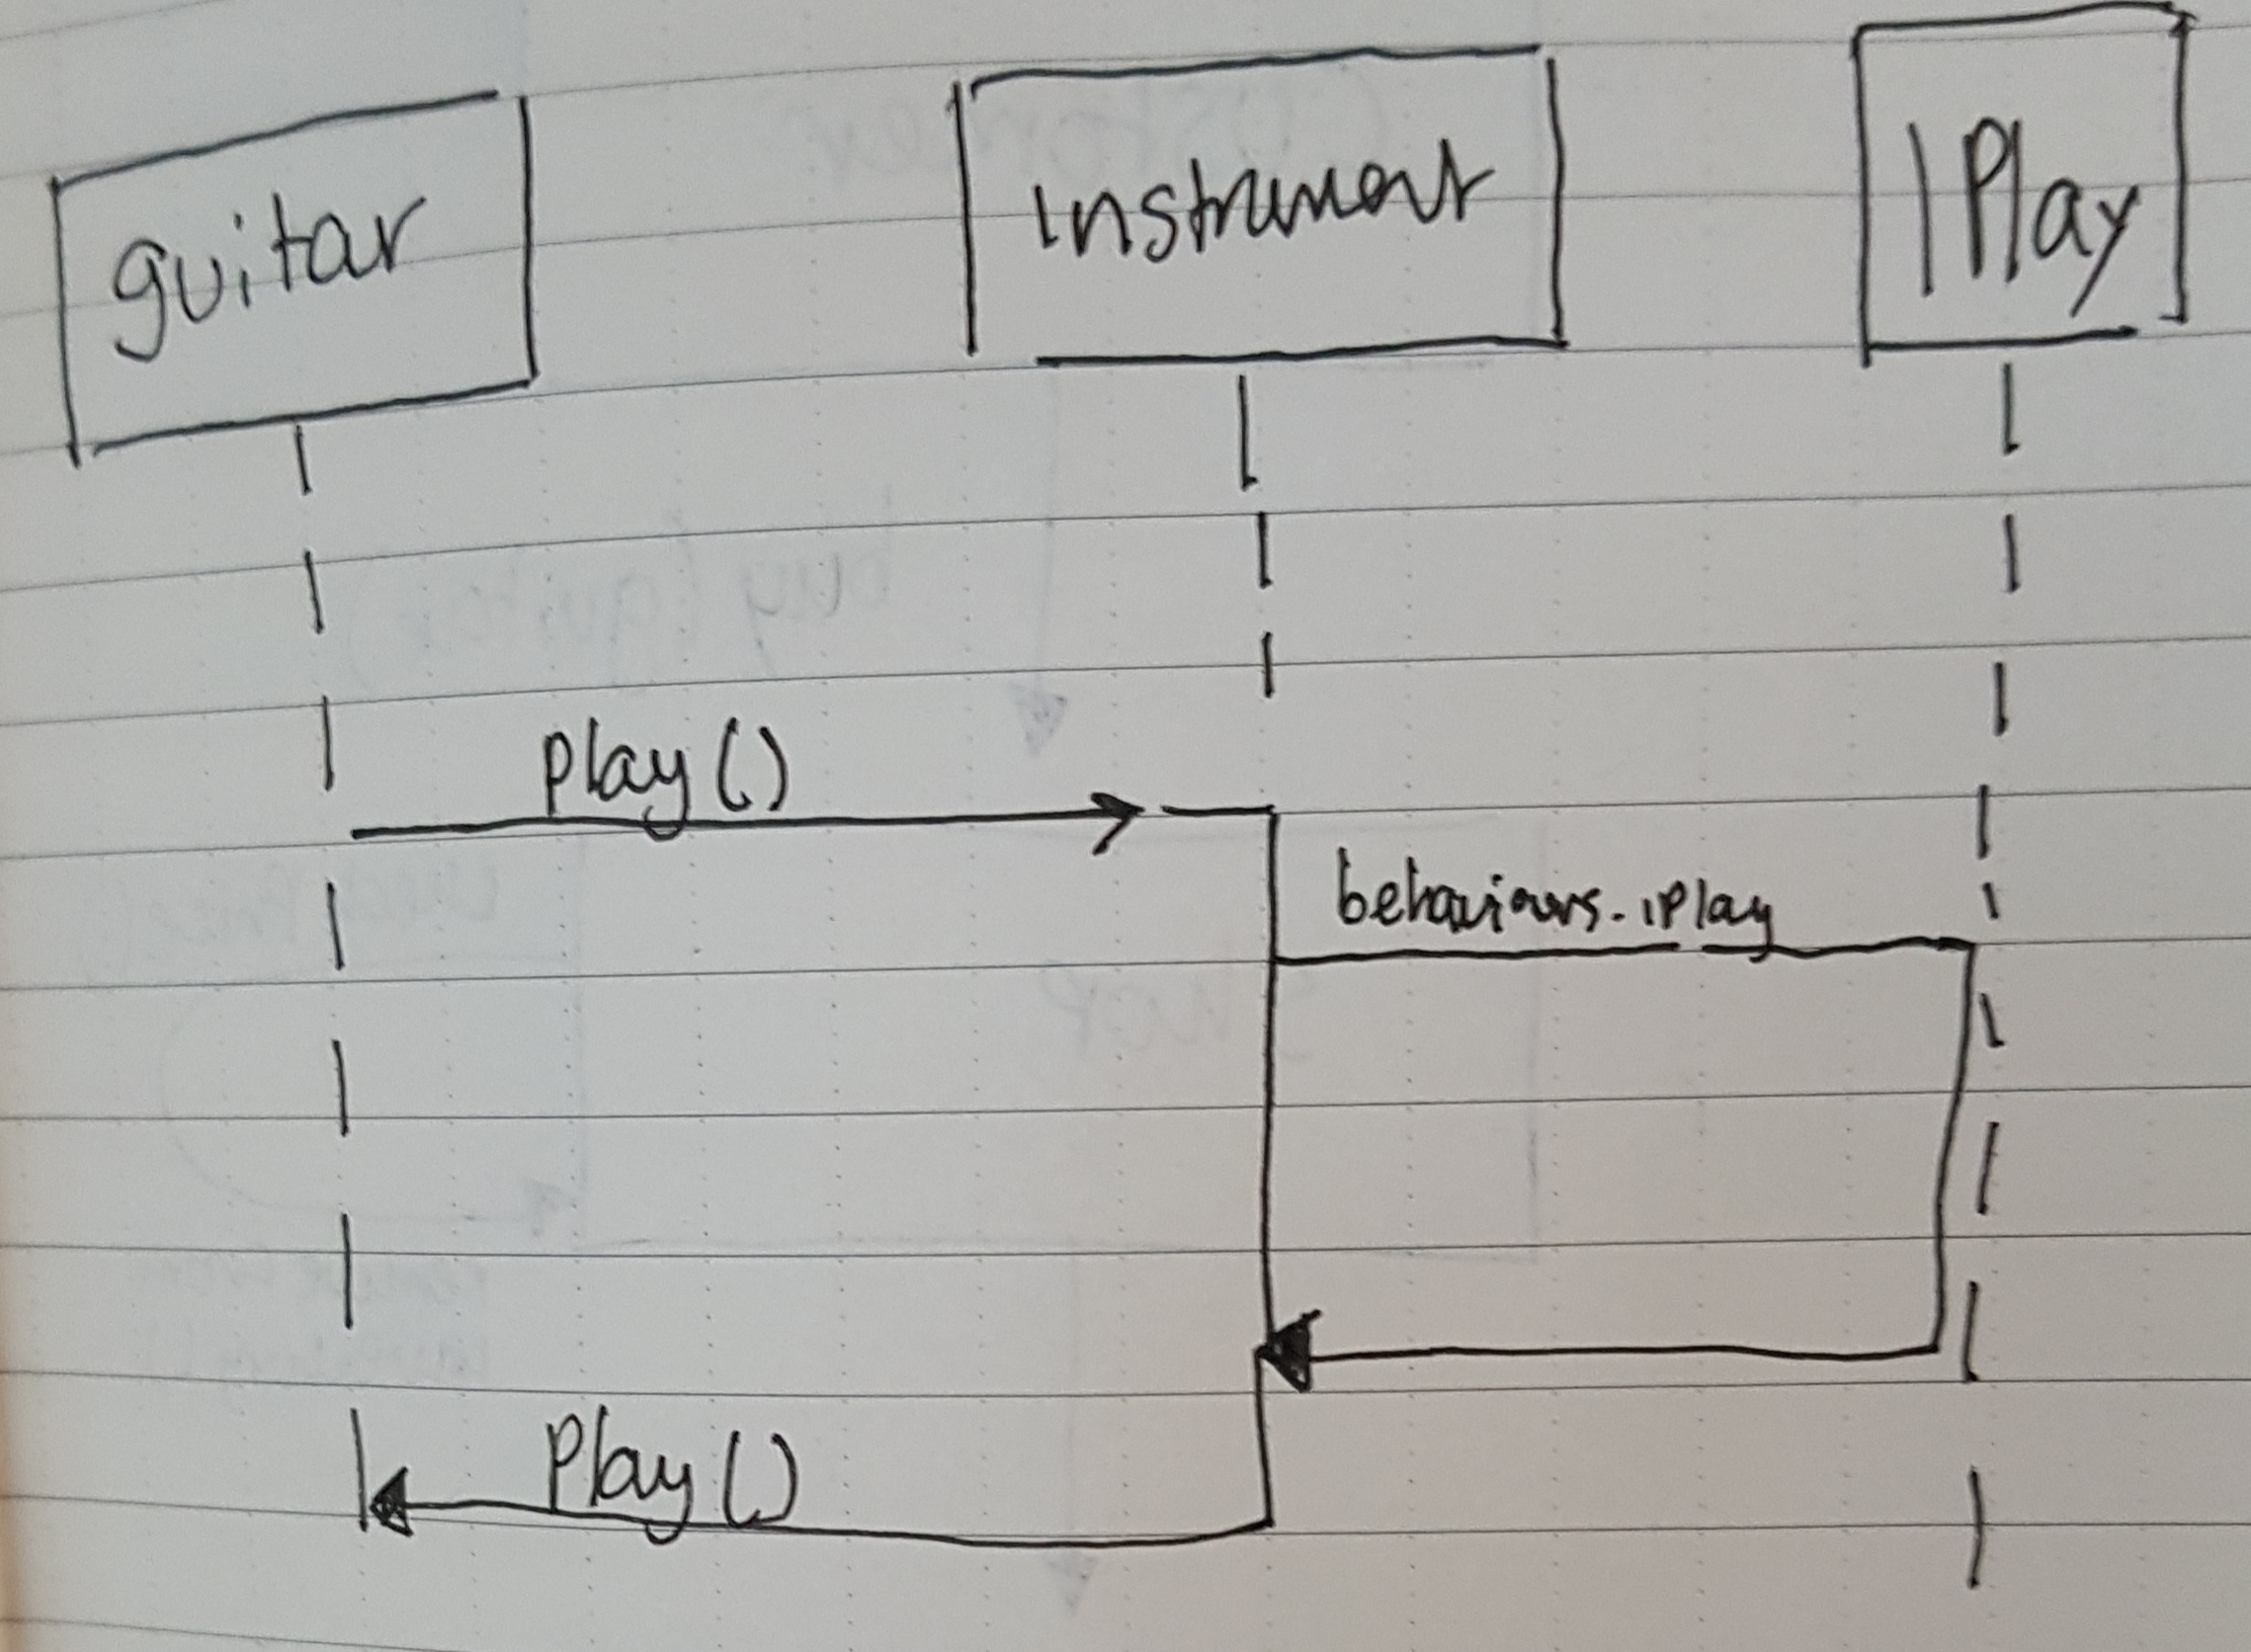 guitar
instrument
IPlay
play()
behaviours.iPlay
Play()